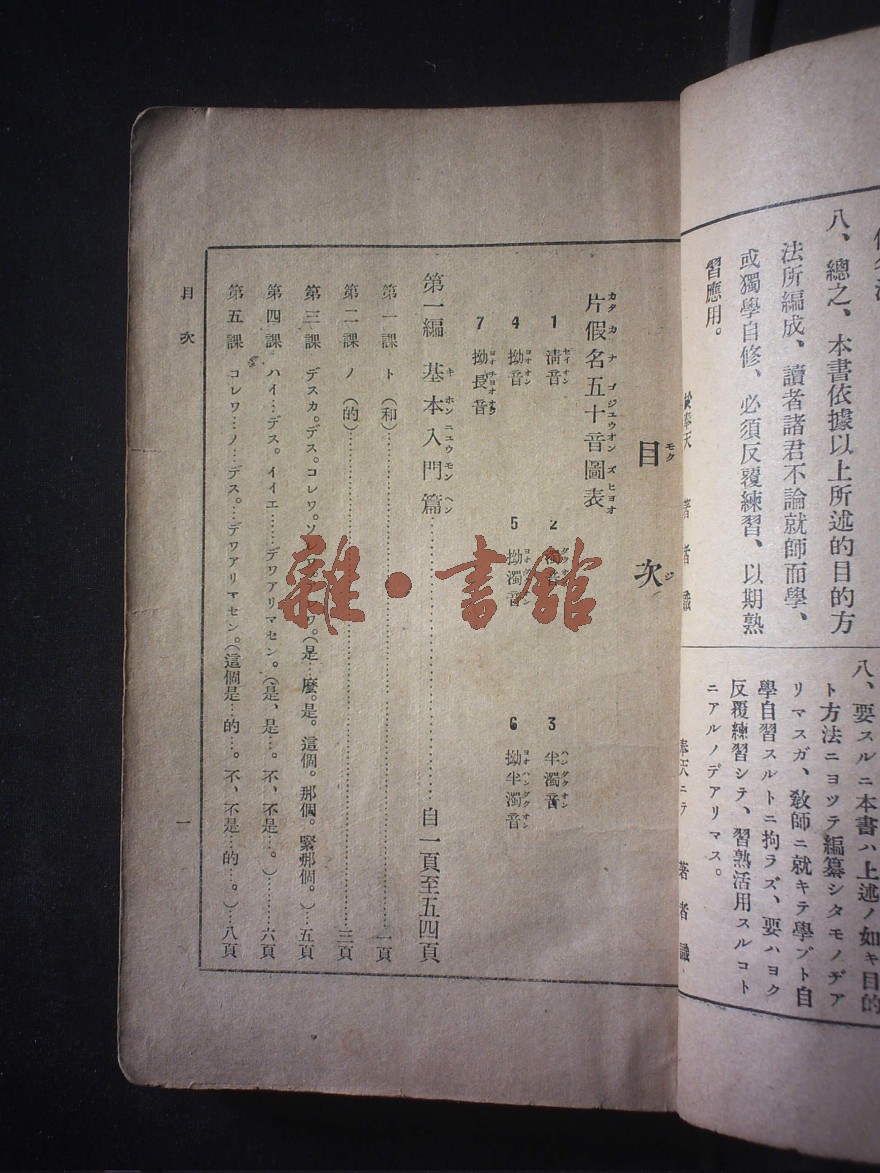 八、總之、本書依據以上所述的目的方
法所編成、讀者諸君不論就師而學、
或獨學自修、必須反覆練習、以期熟
習應用。
奉天 著者識
八、要スルニ本書ハ上述ノ如キ目的
ト方法ニヨツテ編纂シタモノデア
リマスガ、敎師ニ就キテ學ブト自
學自習スルトニ拘ラズ、要ハヨク
反覆練習シテ、習熟活用スルコト
ニアルノデアリマス。
奉天ニテ 著者識
目次
モクジ
片假名五十音圖表
カタカナゴジユウオンズヒヨオ
1 淸音 2 濁音 3 半濁音
セイオン ダクオン ハンダクオン
4 拗音 5 拗濁音 6 拗半濁音
ヨオオン ヨオダクオン ヨオハンダクオン
7 拗長音
ヨオチヨオオン
第一編 基本入門篇……自一頁至五四頁
キホンニユウモンヘン
第一課 ト(和)……一頁
第二課 ノ(的)……三頁
第三課 デスカ。デス。コレワ。ソレワ。(是…麼。是。這個。那個。緊那個。)…五頁
第四課 ハイ…デス。イイエ……デワアリマセン。(是、是…。不、不是…。)……六頁
第五課 コレワ…ノ…デス。…デワアリマセン。(這個是…的…。不、不是…的…。)…八頁
目次
一
雜·書館